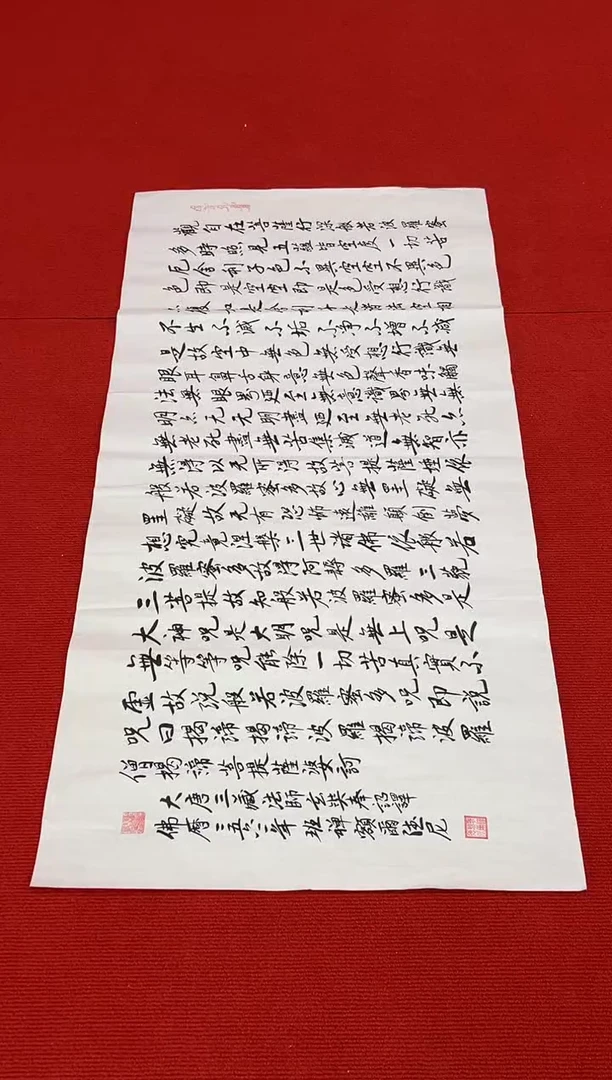 觀自在菩薩行深般若波羅蜜
多時照見五蘊皆空度一切苦
厄舍利子色不異空空不異色
色即是空空即是色受想行識
亦復如是舍利子是諸法空相
不生不滅不垢不淨不增不減
是故空中無色無受想行識無
眼耳鼻舌身意無色聲香味觸
法無眼界迺至無意識界無無
明亦无无明盡迺至無老死亦
無老死盡無苦集滅道無智亦
無得以无所得故菩提薩埵依
般若波羅蜜多故心無罣礙無
罣礙故无有恐怖遠離顛倒夢
想究竟涅槃三世諸佛依般若
波羅蜜多故得阿耨多羅三藐
三菩提故知般若波羅蜜多是
大神呪是大明呪是無上呪是
無等等呪能除一切苦真實不
虛故說般若波羅蜜多呪即說
呪曰揭諦揭諦波羅揭諦波羅
僧揭諦菩提薩婆訶
大唐三藏法師玄奘奉詔譯
佛曆二五六二年 班禪額爾德尼